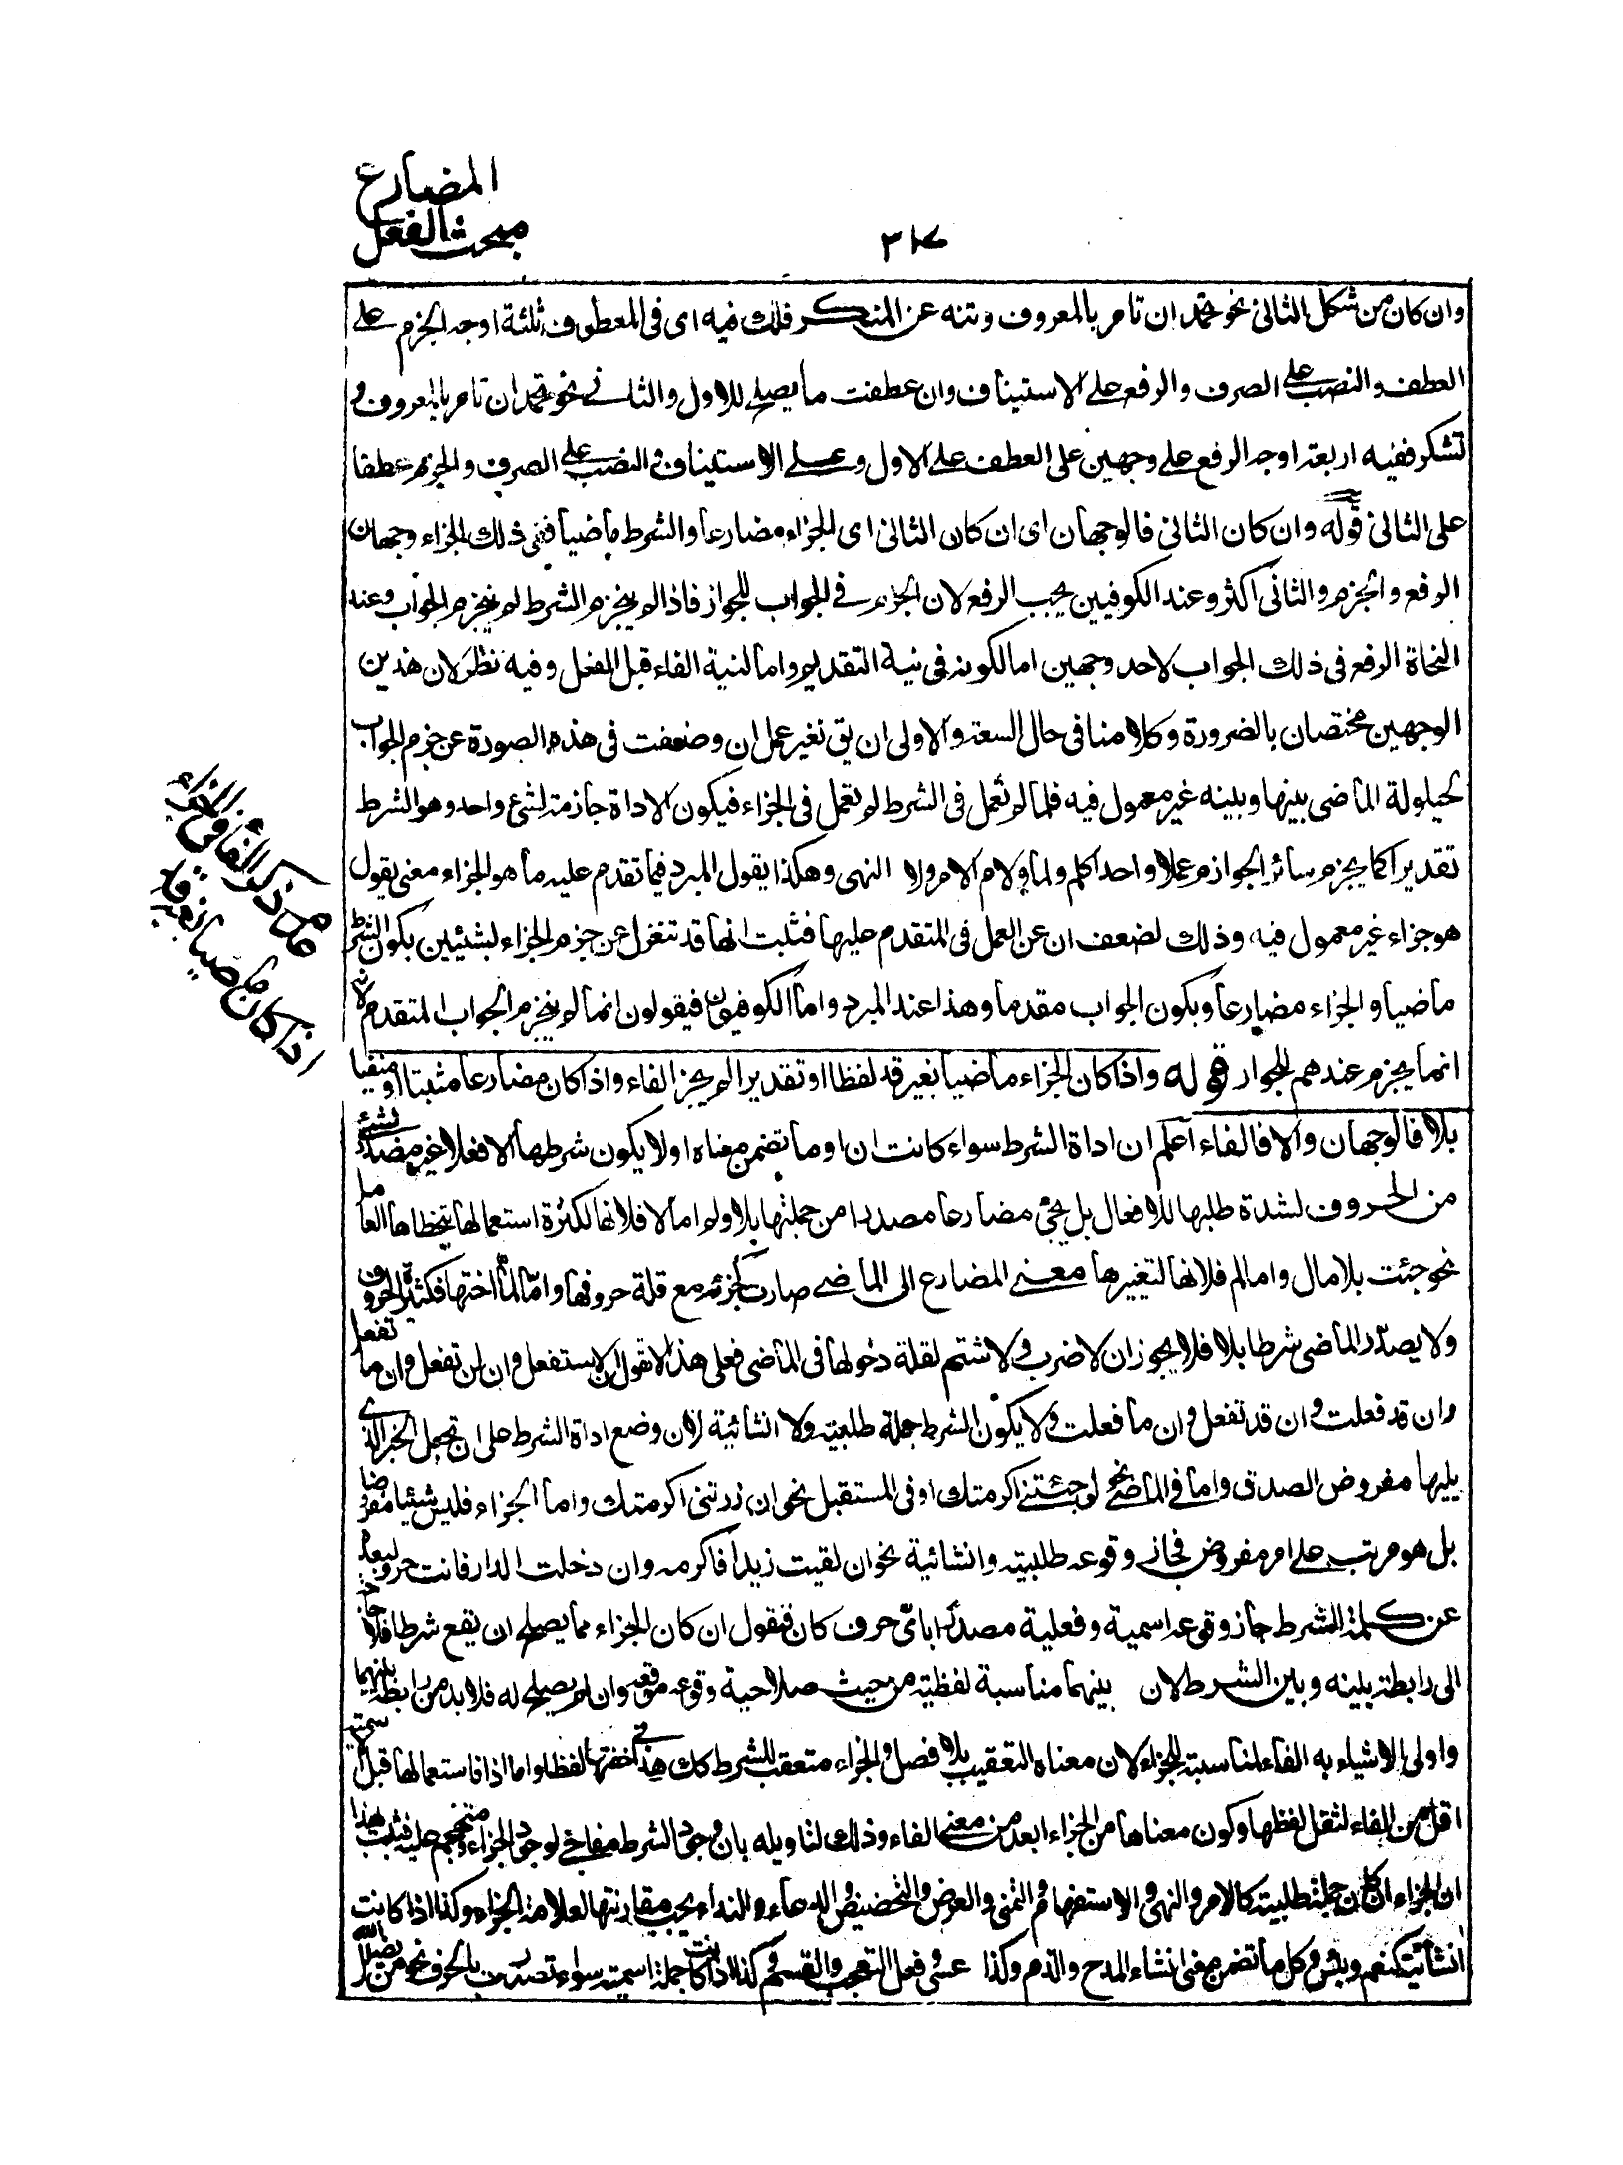 المضارع
مبحث الفعل
٣١٧
وان كان من شكل الثانى نحو تحمد ان تامر بالمعروف وتنه عن المنكر فلك فيه اى فى المعطوف ثلثة اوجه الجزم على
العطف والنصب على الصرف والرفع على الاستيناف وان عطفت ما يصلح للاول والثانى نحو تحمد ان تامر بالمعروف و
تشكر ففيه اربعة اوجه الرفع على وجهين على العطف على الاول وعلى الاستيناف والنصب على الصرف والجزم عطفا
على الثانى قوله وان كان الثانى فالوجهان اى ان كان الثانى اى الجزاء مضارعا والشرط ماضيا ففى ذلك الجزاء وجهان
الرفع والجزم والثانى اكثر وعند الكوفيين يجب الرفع لان الجزم فى الجواب للجواز فاذا لم ينجزم الشرط لم ينجزم الجواب وعند
النحاة الرفع فى ذلك الجواب لاحد وجهين اما لكونه فى نية التقديم واما لنية الفاء قبل الفعل وفيه نظر لان هذين
الوجهين مختصان بالضرورة وكلامنا فى حال السعة والاولى ان يق تغير عمل ان وضعفت فى هذه الصورة عن جزم الجواب
لحيلولة الماضى بينها وبينه غير معمول فيه فلما لم تعمل فى الشرط لم تعمل فى الجزاء فيكون الاداة جازمة لشئ واحد وهو الشرط
تقديرا كما يجزم سائر الجوازم عملا واحدا كلم ولما ولام الامر ولا النهى وهكذا يقول المبرد فيما تقدم عليه ما هو الجزاء معنى يقول
هو جزاء غير معمول فيه وذلك لضعف ان عن العمل فى المتقدم عليها فثبت انها قد تنعزل عن جزم الجزاء لشيئين بكون الشرط
ماضيا والجزاء مضارعا وبكون الجواب مقدما وهذا عند المبرد واما الكوفيون فيقولون انما لم ينجزم الجواب المتقدم لانه
انما يجزم عندهم للجوار قوله واذا كان الجزاء ماضيا بغير قد لفظا او تقديرا لم يجز الفاء واذا كان مضارعا مثبتا او منفيا
بلا فالوجهان والا فالفاء اعلم ان اداة الشرط سواء كانت ان او ما تضمن معناه اولا يكون شرطها الا فعلا غير مصدر بشئ
من الحروف لشدة طلبها للافعال بل يجئ مضارعا مصدرا من جملتها بلا ولم اما لا فلانها لكثرة استعمالها يتخطاها العامل
نحو جئت بلا مال واما لم فلانها لتغييرها معنى المضارع الى الماضى صارت كجزئه مع قلة حروفها واما لما اختها فكثيرة الحروف
ولا يصدر الماضى شرطا بلا فلا يجوز ان لا ضرب ولا شتم لقلة دخولها فى الماضى فعلى هذا لا تقول ان لا يستفعل وان لن تفعل وان ما تفعل
وان قد فعلت وان قد تفعل وان ما فعلت ولا يكون الشرط جملة طلبية ولا انشائية لان وضع اداة الشرط على ان تجعل الخبر الذى
يليها مفروض الصدق واما فى الماضى نحو لو جئتنى اكرمتك او فى المستقبل نحو ان زرتنى اكرمتك واما الجزاء فليس شيئا مفروضا
بل هو مرتب على امر مفروض فجاز وقوعه طلبية وانشائية نحو ان لقيت زيدا فاكرمه وان دخلت الدار فانت حر ولبعده
عن كلمة الشرط جاز وقوعه اسمية وفعلية مصدرا باى حرف كان فنقول ان كان الجزاء مما يصلح ان يقع شرطا فلا حاجة
الى رابطة بينه وبين الشرط لان بينهما مناسبة لفظية من حيث صلاحية وقوعه موقعه وان لم يصلح له فلا بد من رابطة بينهما
واولى الاشياء به الفاء لمناسبته للجزاء لان معناه التعقيب بلا فصل والجزاء متعقب للشرط كك هذى لخفتها لفظا واما اذا فاستعمالها قبل الاسمية
اقل من الفاء لثقل لفظها وكون معناها من الجزاء ابعد من معنى الفاء وذلك لتاويله بان وجود الشرط مفاجئ لوجود الجزاء ومتهجم عليه فثبت بهذا
ان الجزاء ان كان جملة طلبية كالامر والنهى والاستفهام والتمنى والعرض والتحضيض والدعاء والنداء يجب مقارنتها لعلامة الجزاء وكذا اذا كانت
انشائية كنعم وبئس وكل ما تضمن معنى انشاء المدح والذم وكذا عسى وفعل التعجب والقسم وكذا اذا كانت جملة اسمية سواء تصدرت بالحرف نحو من يضلل الله
اذا كان ماضيا بغير قد